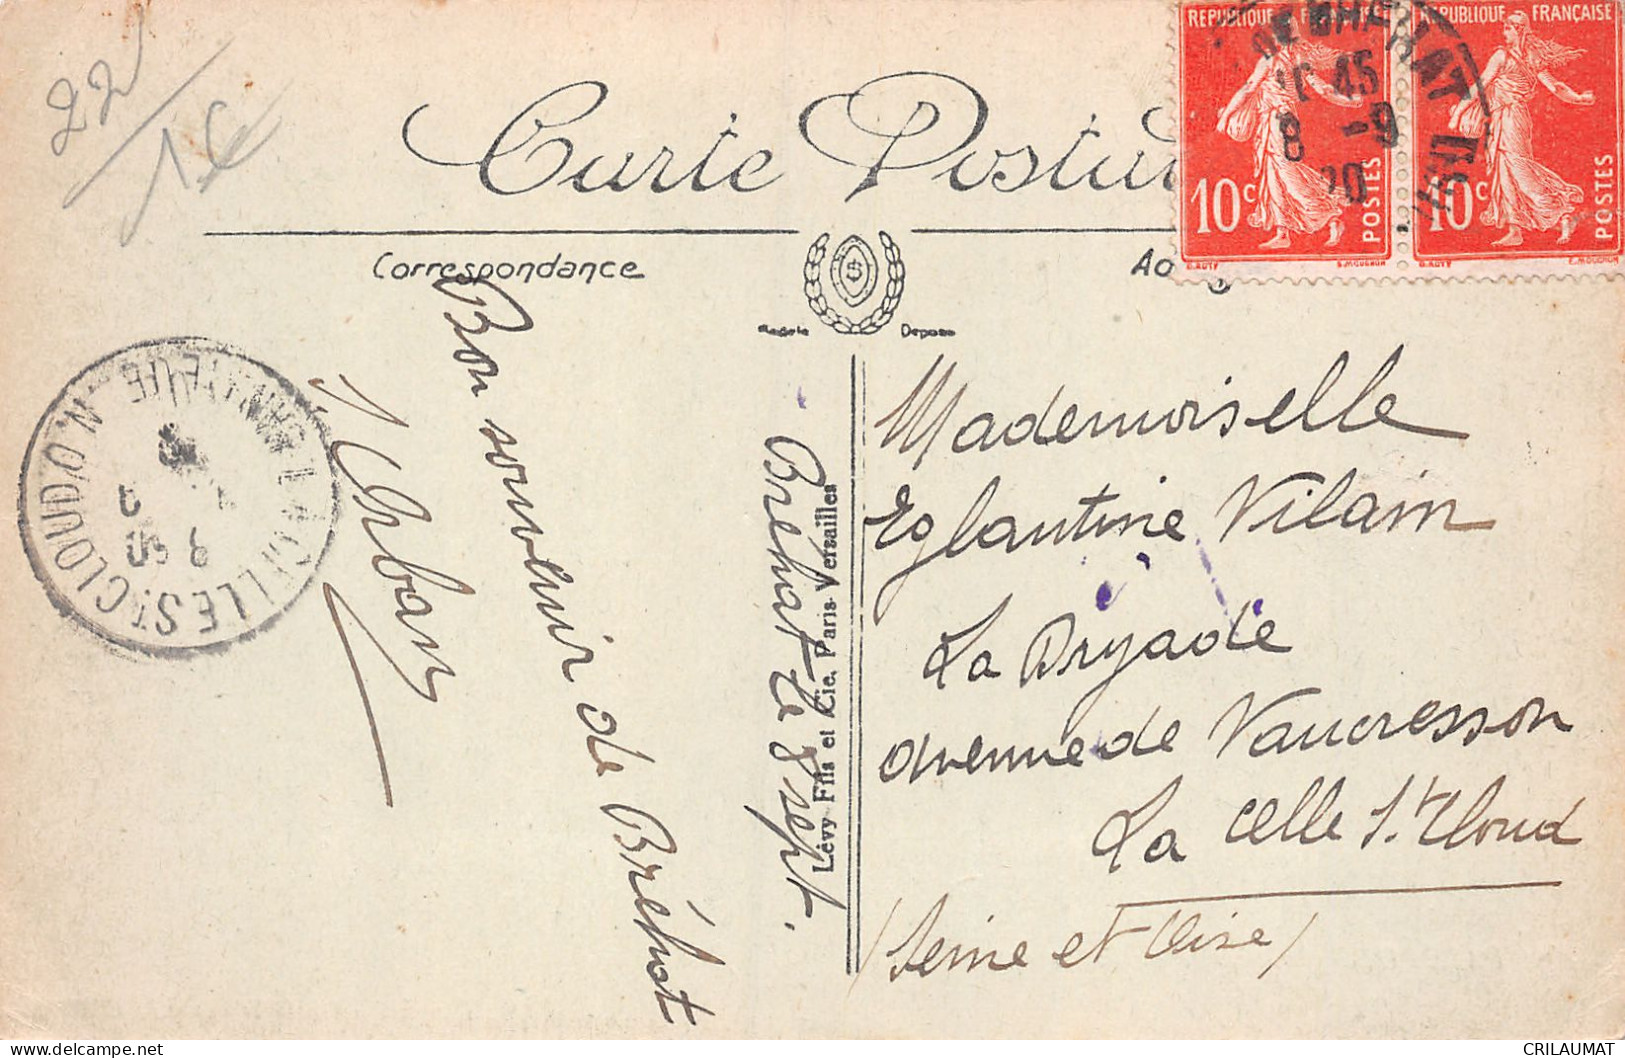 22
1€
Carte Postale
Correspondance
REPUBLIQUE FRANÇAISE
10c POSTES
REPUBLIQUE FRANÇAISE
10c POSTES
E. MOUCHON
45
8 -9
20
Modèle Déposé
Lévy Fils et Cie, Paris-Versailles
LA CELLE ST CLOUD
Bréhat le 8 sept.
Bon souvenir de Bréhat
Urbain
Mademoiselle
Eglantine Vilain
La Dryade
avenue de Vaucresson
La Celle St. Cloud
(Seine et Oise)
CRILAUMAT